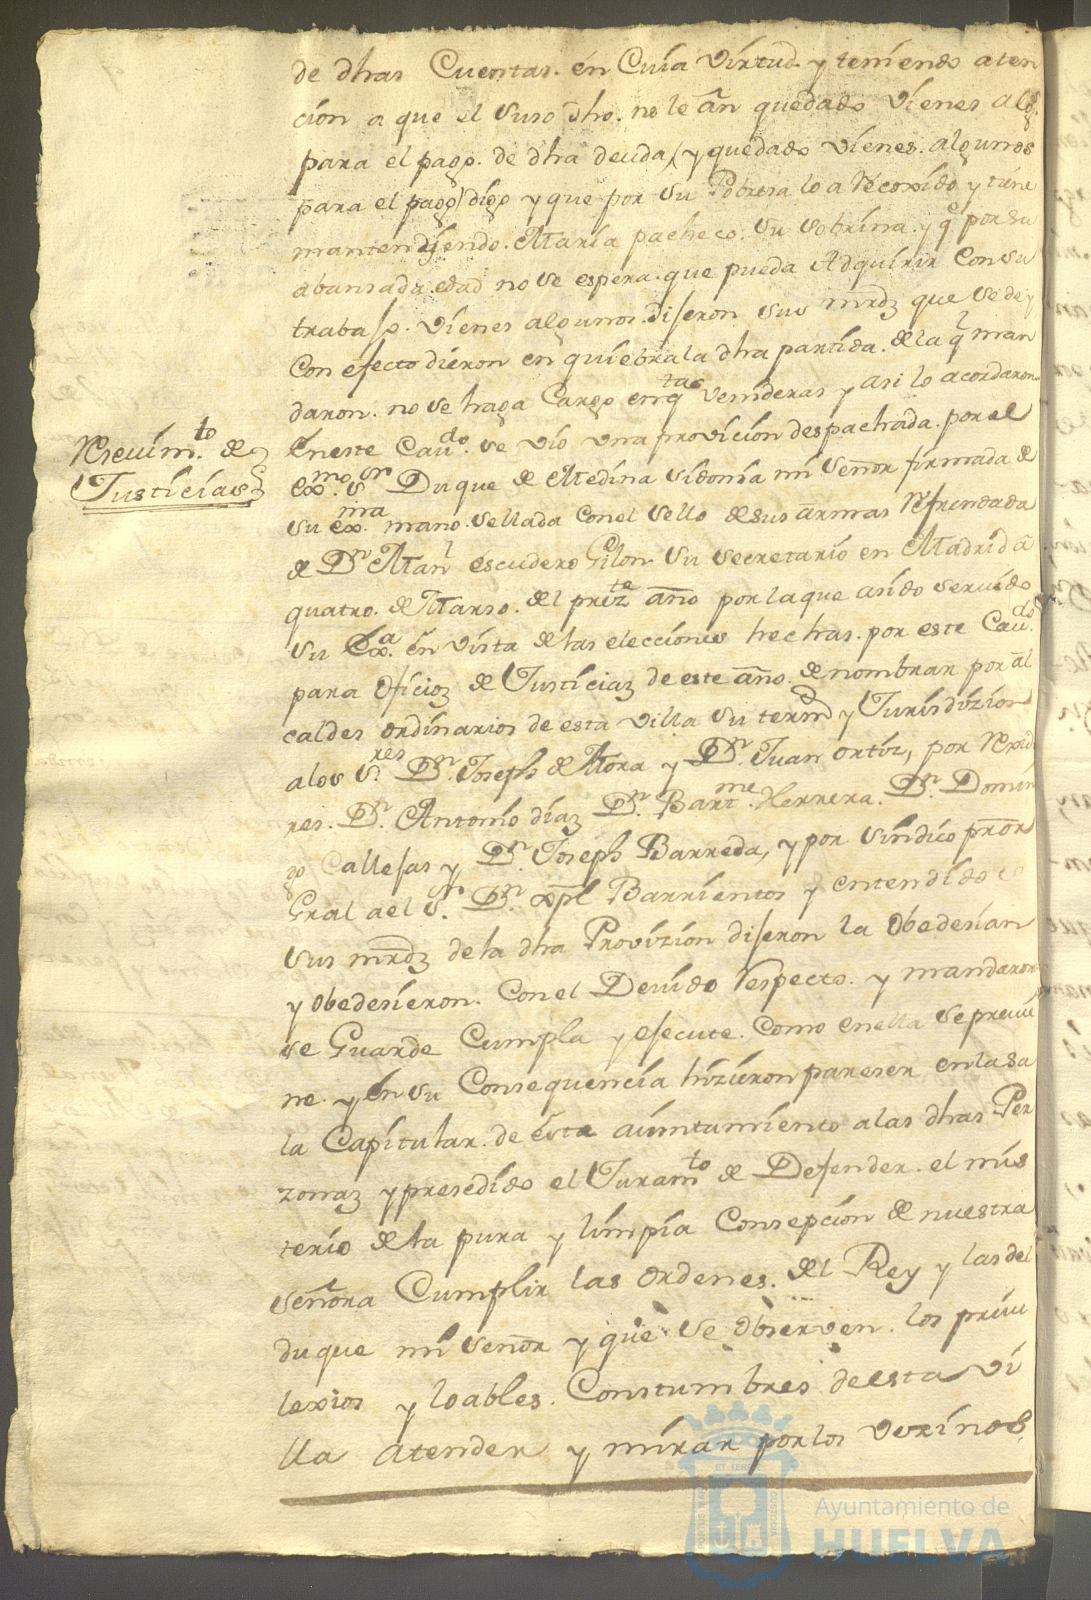 de dhas Cuentas. en Cuia Virtud y teniendo aten
ción a que el suso dho. no le an quedado Vienes alg.
para el pago. de dha deuda, y quedado vienes. algunos
para el pago/digo y que por su Pobresa lo a Recoxido y tiene
mantendiendo. Maria pacheco. su sobrina. y q.e por su
abansada edad no se espera. que pueda Adquirir con su
trabajo. vienes algunos. dijeron sus mrdz que se de y
Con efecto dieron en quiebra la dha partida. de la q.l man
daron. no se haga Cargo en q.tas venideras y asi lo acordaron
Resevim.to de
Justicias
En este Cav.do se vio una provicion despachada. por el
ex.mo s.or Duque de Medina sidonia mi señor firmada de
su ex.ma mano. sellada con el sello de sus armas Refrendada
de D.n Man.l escudero Gilon su secretario en Madrid a
quatro. de Marso. del prez.te año por la que asido servido
su Ex.a en vista de las elecciones hechas. por este Cav.do
para oficioz de Justiciaz de este año. de nombrar por al
caldes ordinarios de esta villa su termo y Jurisdizion
alos S.res D.n Joseph de Mora y D.n Juan ortiz, por Rexido
res. D.n Antonio diaz D.n Bart.me Herrera. D.n Domin
go Callejas y D.n Joseph Barreda, y por sindico pror
Gral a el S.or D.n xpl Barrientos y entendido
sus mrdz de la dha Provizion dijeron la Obedesian
y Obedesieron. Con el Devido Respecto. y mandaron
se Guarde Cumpla y ejecute. Como en ella se previe
ne. y en su Consequencia hizieron pareser en la sa
la Capitular. de esta aiuntamiento a las dhas Per
zonaz y presedido el Juram.to de Defender. el mis
terio de la pura y limpia Consepcion de nuestra
señora Cumplir las ordenes. del Rey y las del
duque mi señor y que se observen. los privi
lexios y loables. Constumbres de esta vi
lla atender y mirar por los vesinos.
Ayuntamiento de
HUELVA